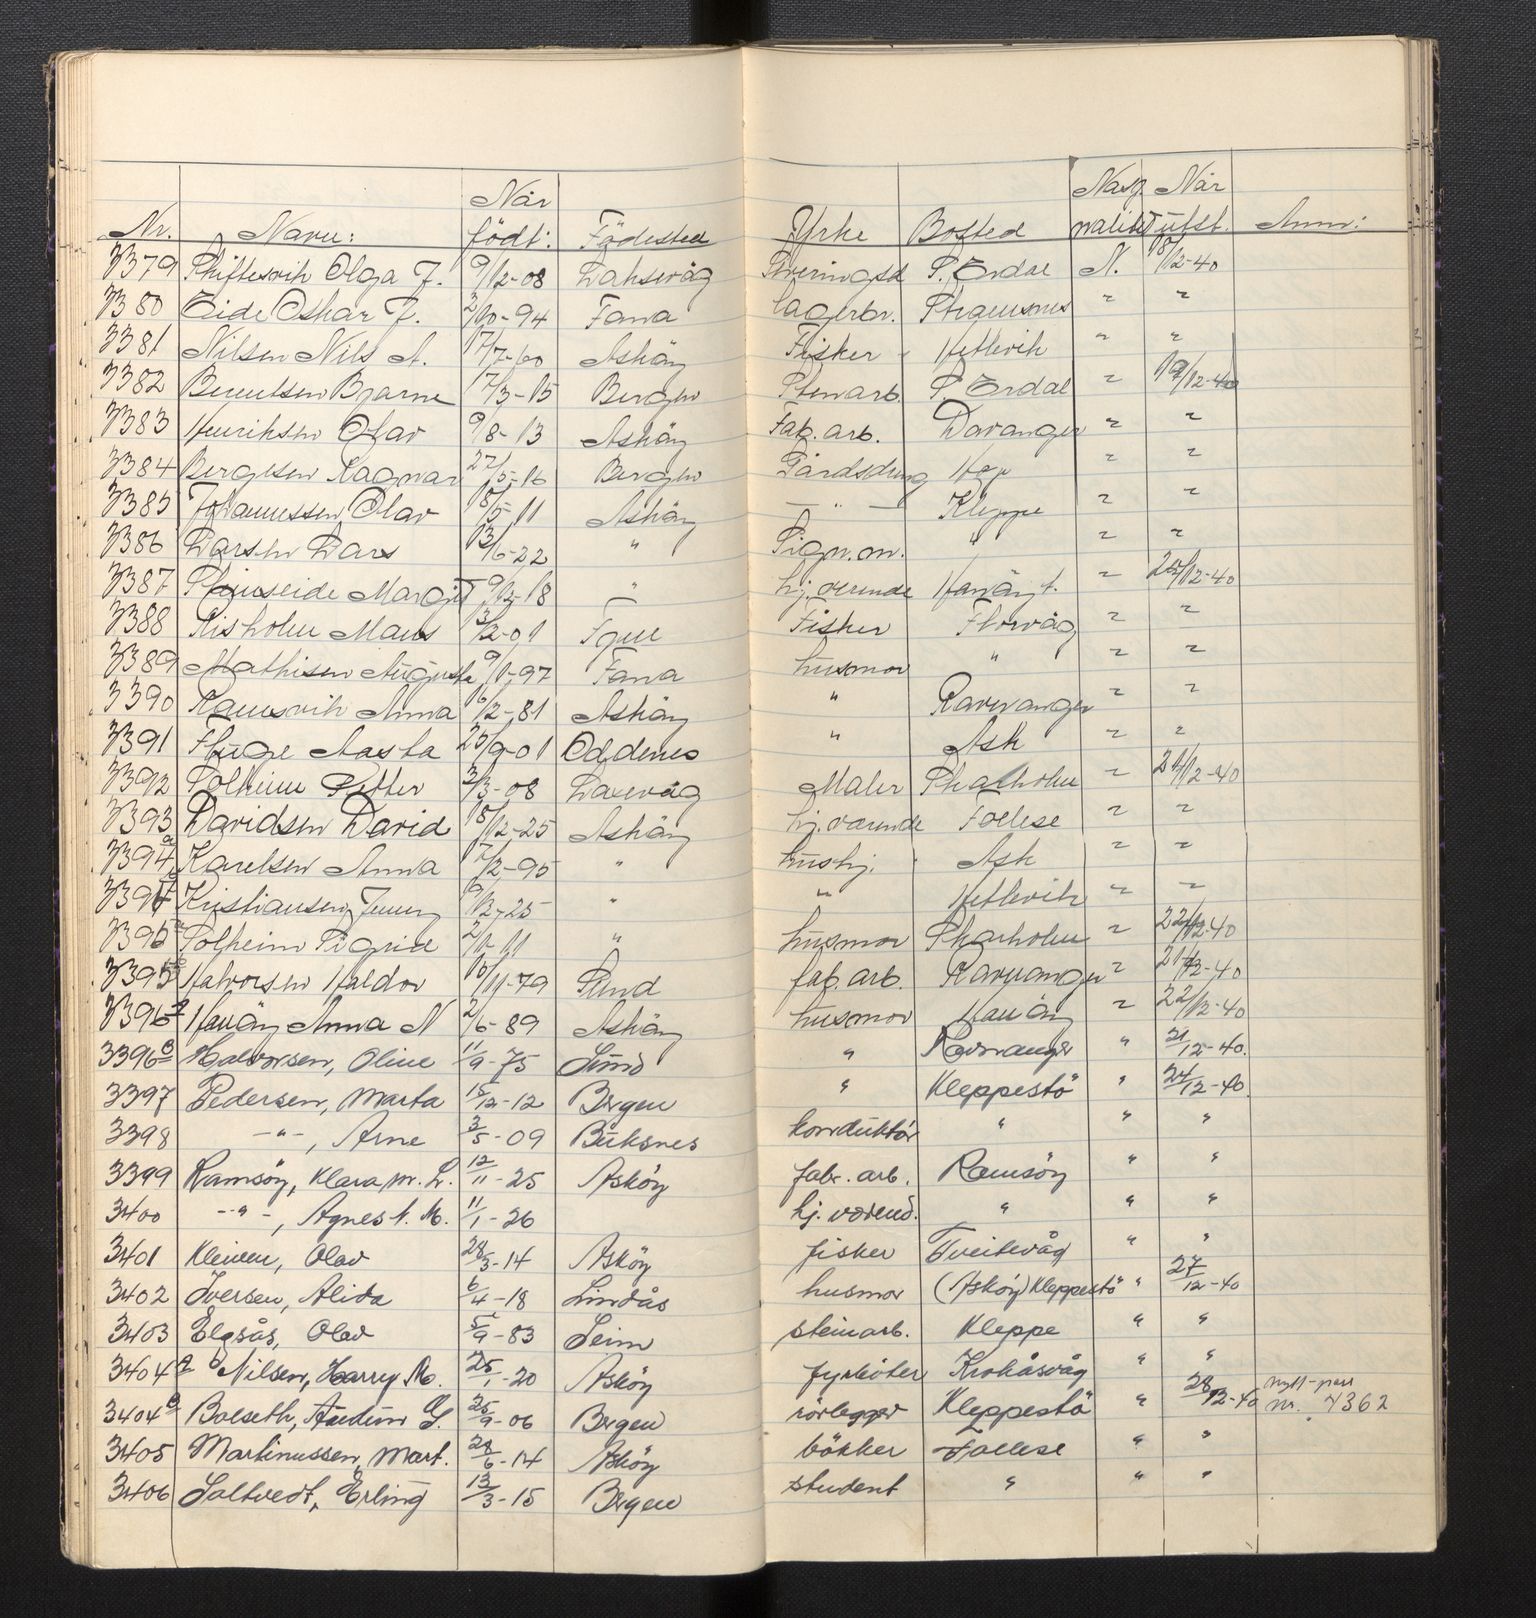 Nr. Navn: Når födt: Födested Yrke Bosted Nasjonalitet Når utst. Anm:
3379 Skiftesvik Olga J. 9/12-08 Laksevåg S. Erdal N. 18/12-40
3380 Eide Oskar J. 2/10-94 Fana Lagerbr. Stramsnes " "
3381 Nilsen Nils A. 17/7-60 Asköy Fisker Hetlevik " "
3382 Berntsen Bjarne 17/3-15 Bergen Stenarb. S. Erdal " 19/12-40
3383 Henriksen Olav 9/8-13 Asköy Fab. arb. Davanger " "
3384 Bergesen Ragnar 27/5-16 Bergen Gårdsdreng Hop " "
3385 Johannessen Olav 18/5-11 Asköy — " — Kleppe " "
3386 Larsen Lars 13/6-22 " Sign. m. " " "
3387 Steinseide Margit 9/12-18 " hj. værende Hanöyt. " 20/12-40
3388 Risholm Mons 3/2-01 Fisker Florvåg " "
3389 Mathisen Augusta 9/1-97 Fana husmor " " "
3390 Ramsvik Anna 6/2-81 Asköy " Ravnanger " "
3391 Fluge Aasta 25/9-01 Oddenes " Ask " "
3392 Solheim Petter 3/3-08 Laxevåg Maler Skarholm " 21/12-40
3393 Davidsen David 18/12-25 Asköy hj. værende Follese " "
3394a Karelsen Anna 7/2-95 " hushj. Ask " "
3394b Kristiansen, Jenny 9/12-25 " " Hetlevik " "
3395a Solheim Sigrid 2/1-11 " husmor Skarholm " 22/12-40
3395b Halvorsen Haldor 16/11-79 Sund fab. arb. Ravnanger " 21/12-40
3396a Hanöy Anna N 2/6-89 Asköy husmor Hanöy " 22/12-40
3396B Halvorsen, Oline 11/9-75 Sund " Ravnanger " 21/12-40.
3397 Pedersen, Marta 15/12-12 Bergen " Kleppestö " 24/12-40.
3398 —"—, Arne 3/5-09 Buksnes konduktör " " "
3399 Ramsöy, Klara M. L. 12/11-25 Asköy fabr. arb. Ramsöy " "
3400 —"—, Agnes A. M. 11/1-26 hj. værend. " " "
3401 Kleiven, Olav 28/3-14 Asköy fisker Tveitevåg " "
3402 Iversen, Alida 6/4-18 Lindås husmor (Asköy) Kleppestö " 27/12-40
3403 Elgsås, Olav 5/9-83 Seim steinarb. Kleppe " "
3404a Nilsen, Harry M. 25/1-20 Asköy fyrböter Krokåsvåg " "
3404B Bolseth, Audun G. 25/9-06 Bergen rörlegger Kleppestö " 28/12-40 nytt-pass nr. 4362
3405 Martinussen, Mart. 28/6-14 Asköy bökker Follese " "
3406 Saltvedt, Erling 13/3-15 Bergen student " " "